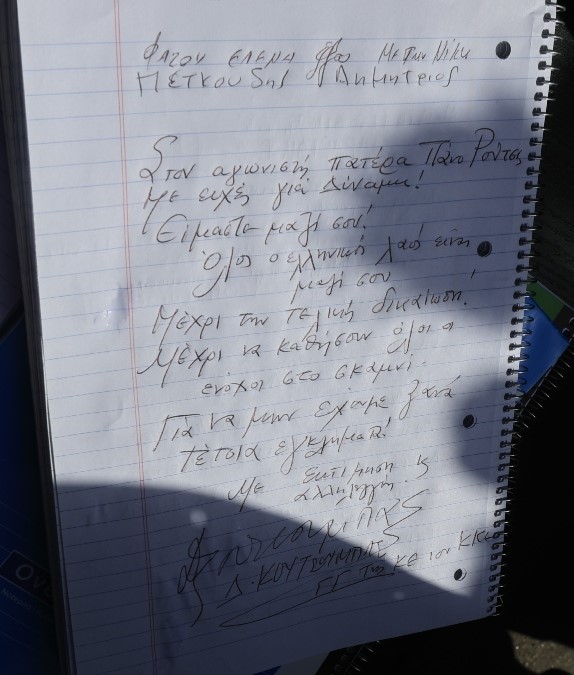 ΦΑΖΟΥ ΕΛΕΝΑ Με την Νίκη
ΠΕΤΚΟΥδης Δημητριος
Στον αγωνιστή πατέρα Πάνο Ρούτσι
Με ευχές για Δύναμη!
Είμαστε μαζί σου!
Όλος ο ελληνικός λαός είναι
μαζί σου
Μέχρι την τελική δικαίωση!
Μέχρι να καθήσουν όλοι οι
ένοχοι στο σκαμνί.
Για να μην έχουμε ξανά
τέτοια εγκλήματα!
Με εκτίμηση κ
αλληλεγγύη.
Δ. ΚΟΥΤΣΟΥΜΠΑΣ
ΓΓ της ΚΕ του ΚΚΕ
OV